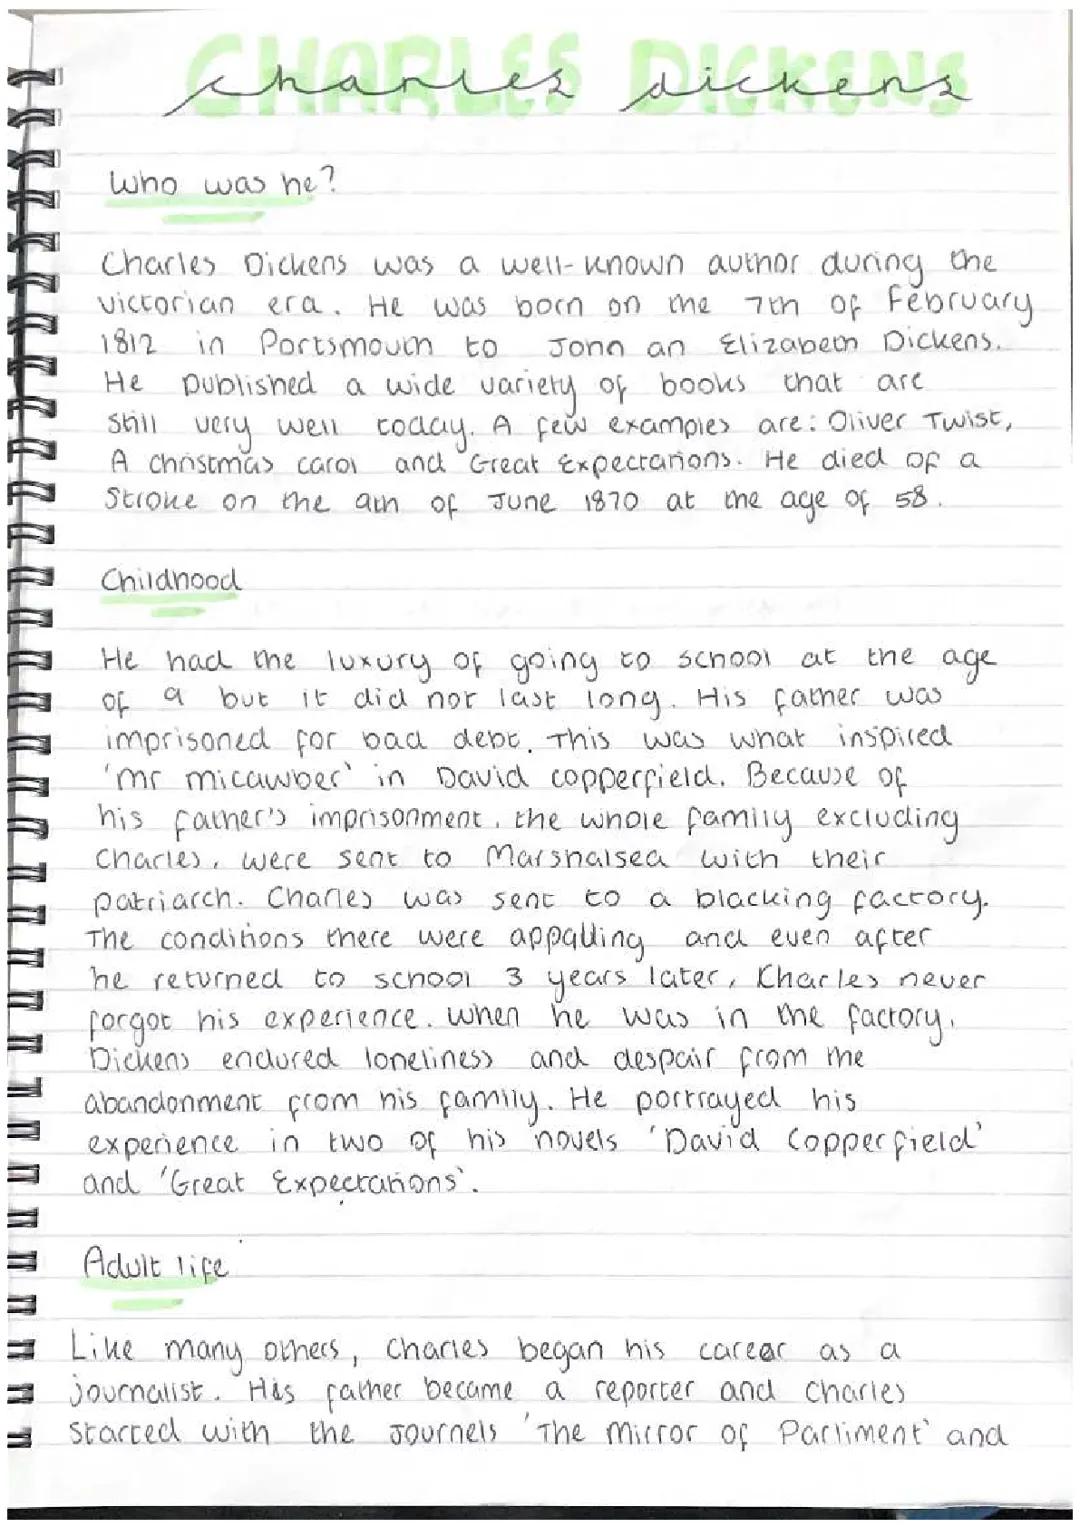 CHARLES DICKENS
charles dickens
Who was he?
Charles Dickens was a well-known author during the
victorian era. He was born on the 7th of February
1812 in Portsmouth to John an Elizabeth Dickens.
He published a wide variety of books that are
still very well today. A few examples are: Oliver Twist,
A christmas carol and Great Expectations. He died of a
Stroke on the 9th of June 1870 at the age of 58.
Childhood
He had the luxury of going to school at the age
of 9 but it did not last long. His father was
imprisoned for bad debt. This was what inspired
'mr micawber' in David copperfield. Because of
his father's imprisonment, the whole family excluding
Charles, were sent to Marshalsea with their
patriarch. Charles was sent to a blacking factory.
The conditions there were appalling and even after
he returned to school 3 years later, Charles never
forgot his experience. When he was in the factory,
Dickens endured loneliness and despair from the
abandonment from his family. He portrayed his
experience in two of his novels 'David Copperfield'
and 'Great Expectations'.
Adult life
Like many others, Charles began his career as a
journalist. His father became a reporter and Charles
started with the journels 'The Mirror of Parliment' and